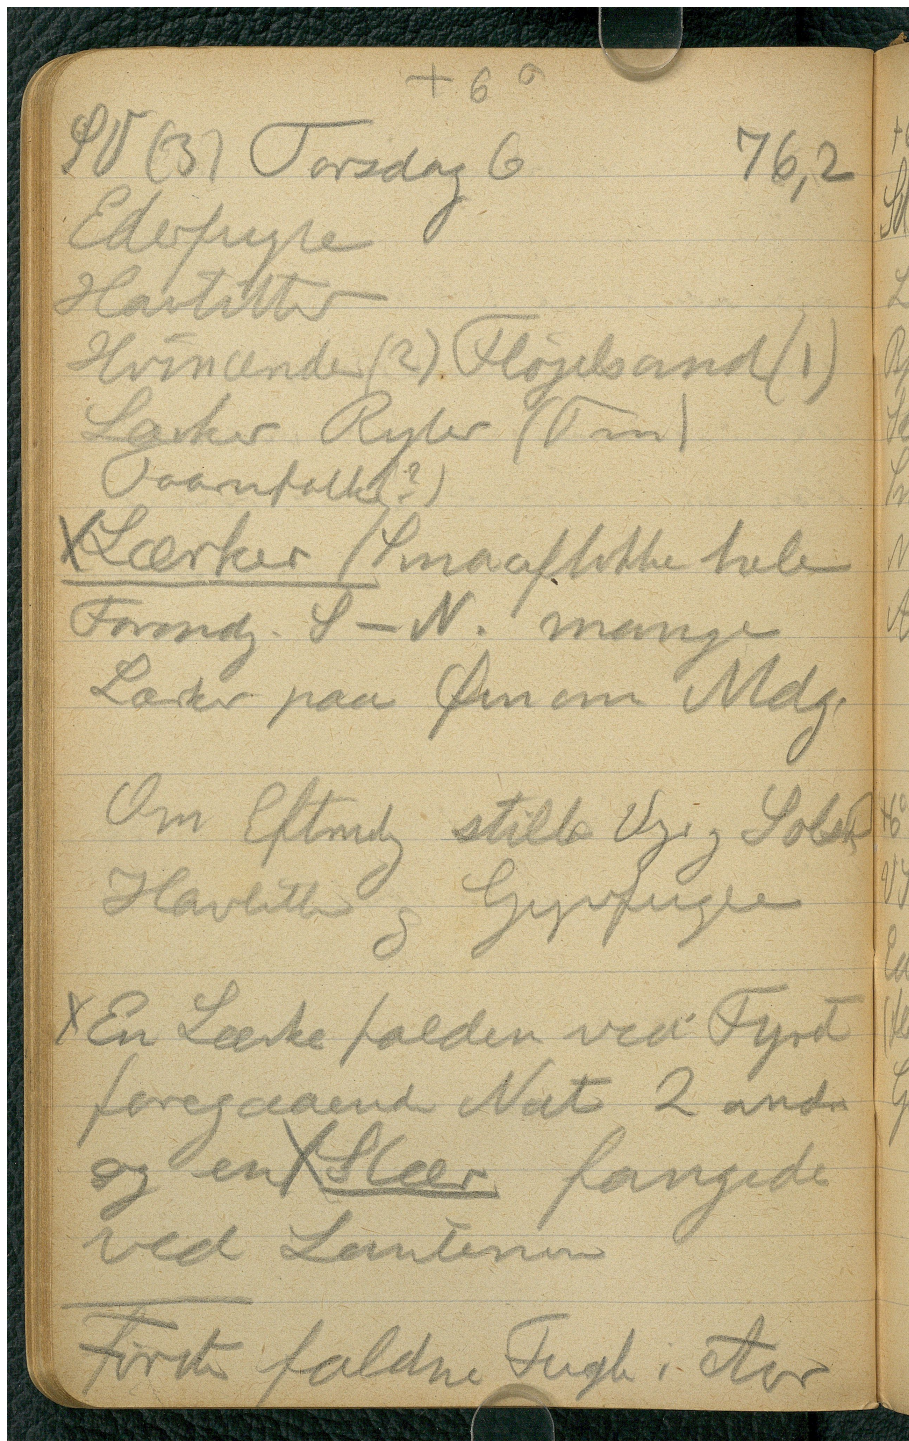 + 6°
SV (3) Torsdag 6 76,2
Ederfugle
Havlitter
Hvinænder (2) Fløjelsand (1)
Lærker Ryler (Tm)
Taarnfalk (?)
X Lærker / Smaaflokke hele
Formdg. S – N. mange
Lærker paa Øen om Mdg.
Om Eftmdg stille Vejr og Solsk
Havlitter og
X En Lærke falden ved Fyret
foregaaende Nat 2 andre
og en X Stær fangede
ved Lanternen
Første faldne Fugle i Aar